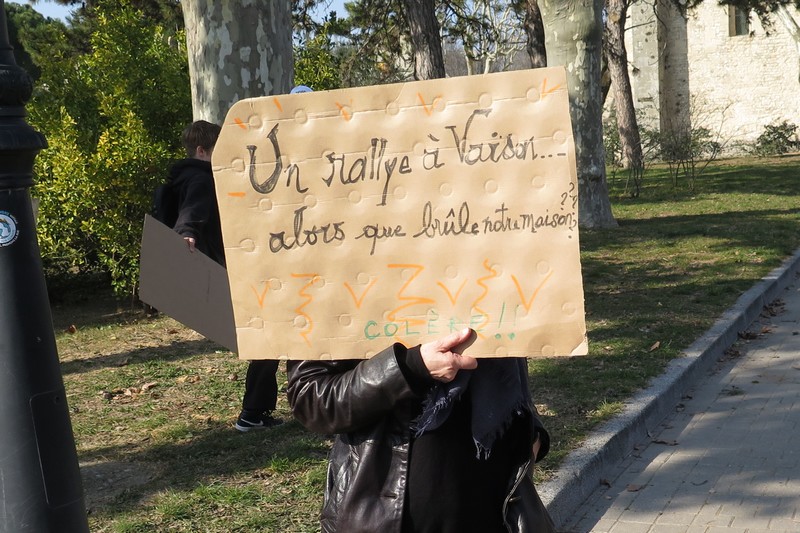 Un rallye à Vaison....
alors que brûle notre maison ????
COLÈRE !!